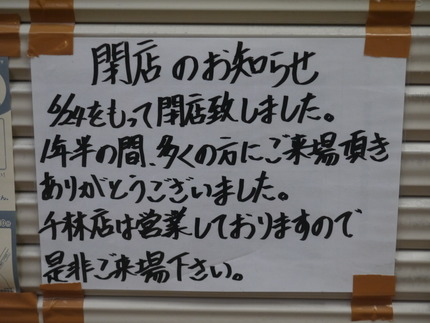 閉店のお知らせ
6/24をもって閉店致しました。
1年半の間、多くの方にご来場頂き
ありがとうございました。
千林店は営業しておりますので
是非ご来場下さい。